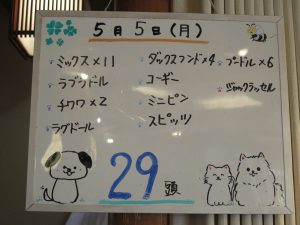 5月5日(月)
ミックス×11
ラブラドール
チワワ×2
ラグドール
ダックスフンド×4
コーギー
ミニピン
スピッツ
プードル×6
ジャックラッセル
29頭